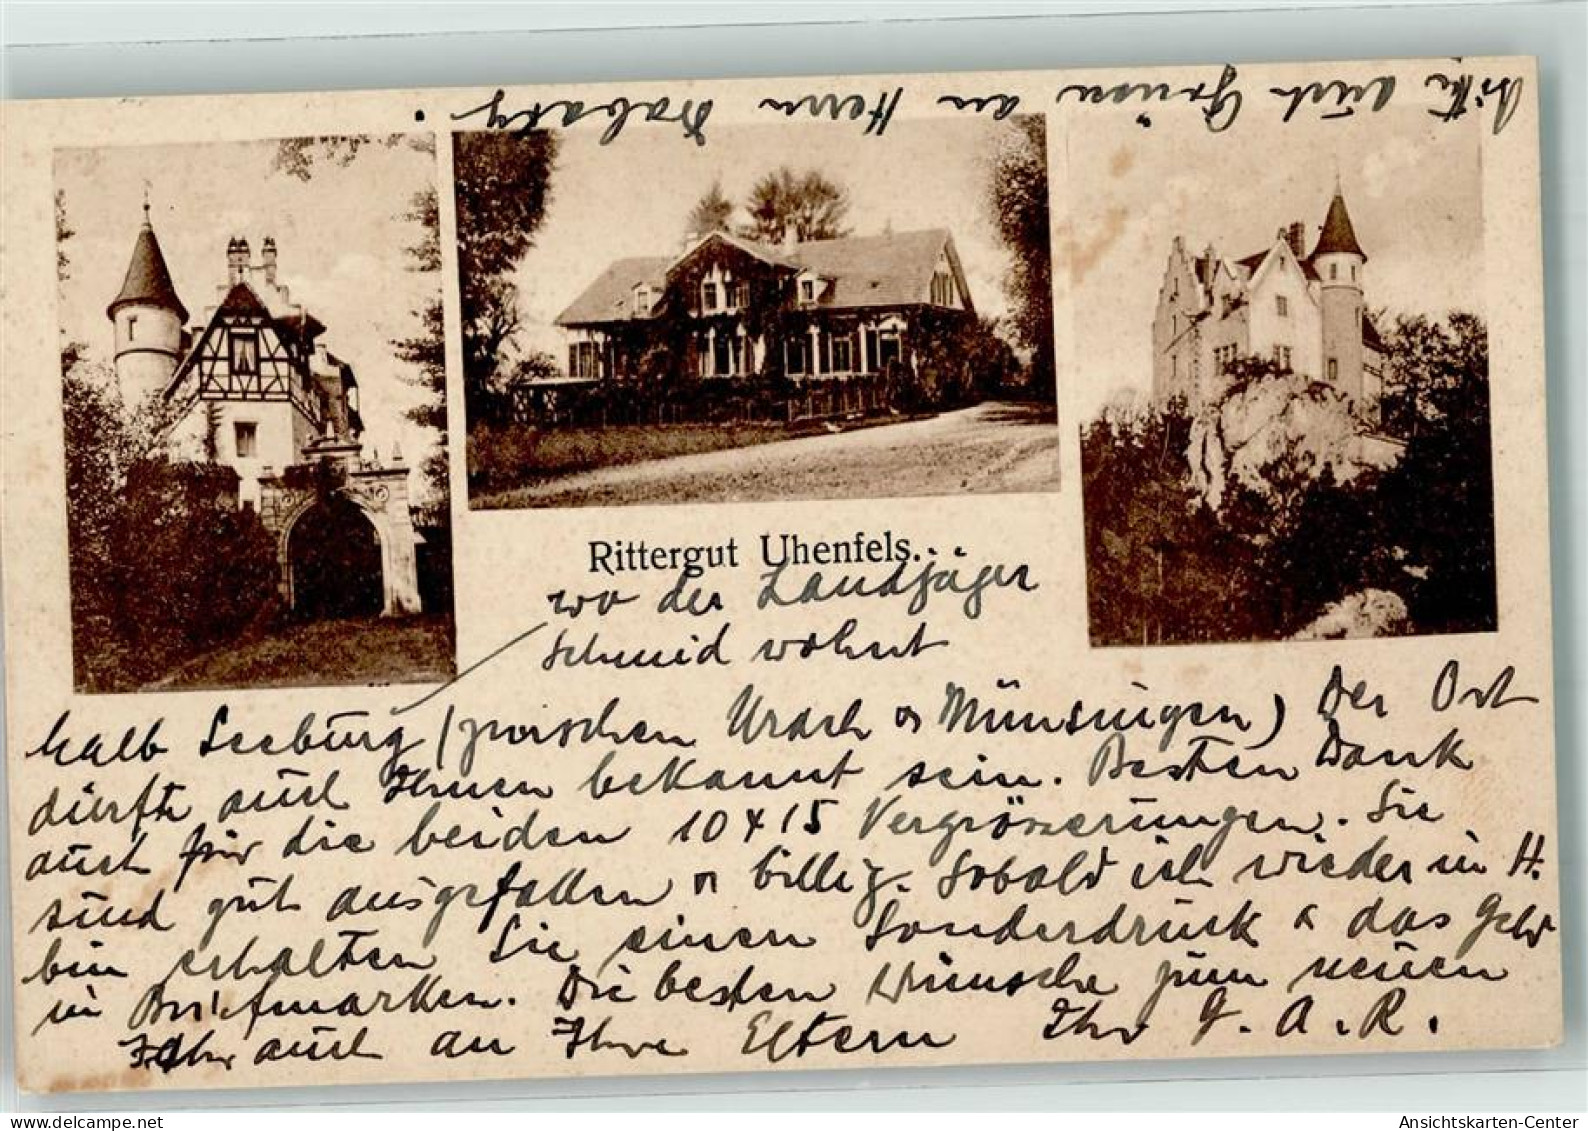 Bitte auch Grüsse an Herrn
Rittergut Uhenfels.
wo der Landjäger
Schmid wohnt
halb Seeburg (zwischen Urach u Münsingen) Der Ort
dürfte auch Ihnen bekannt sein. Besten Dank
auch für die beiden 10 x 15 Vergrösserungen. Sie
sind gut ausgefallen u billig. Sobald ich wieder in H.
bin erhalten Sie einen Sonderdruck u das Geld
in Briefmarken. Die besten Wünsche zum neuen
Jahr auch an Ihre Eltern Ihr G. A. R.
Ansichtskarten-Center
www.delcampe.net